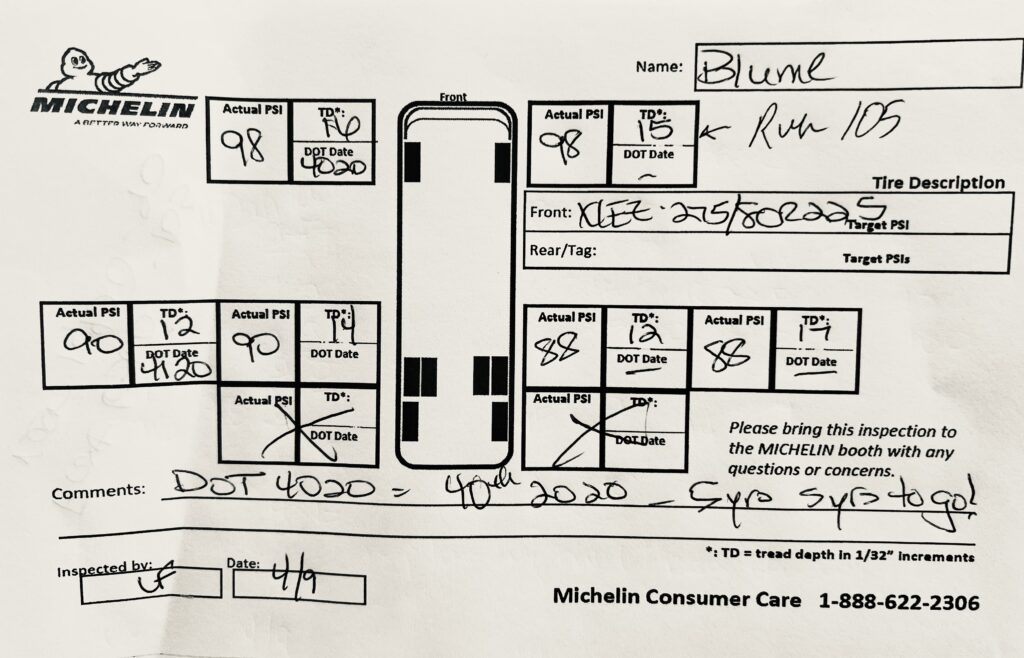 Name: Blume
MICHELIN
A BETTER WAY FORWARD
Front
Actual PSI TD*: Actual PSI TD*:
98 98 15 ← Run 105
DOT Date DOT Date
4020 ~
Tire Description
Front: XZE 275/80R22.5
Target PSI
Rear/Tag:
Target PSIs
Actual PSI TD*: Actual PSI TD*: Actual PSI TD*: Actual PSI TD*:
90 12 90 14 88 12 88 17
DOT Date DOT Date DOT Date DOT Date
4120
Actual PSI TD*: Actual PSI TD*:
DOT Date DOT Date
Please bring this inspection to
the MICHELIN booth with any
questions or concerns.
Comments: DOT 4020 = 40th 2020 - 5yrs to go!
*: TD = tread depth in 1/32" increments
Inspected by: Date: 4/9
Michelin Consumer Care 1-888-622-2306